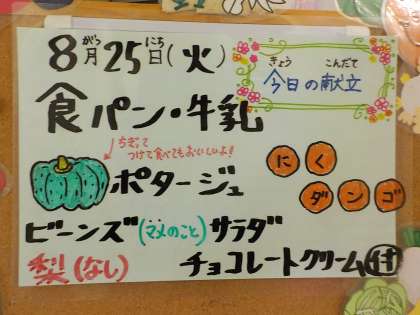 8月25日(火)
がつ にち
きょう こんだて
今日の献立
食パン・牛乳
ちぎって
つけて食べてもおいしいよ!
ポタージュ
にく
ダンゴ
ビーンズ(マメのこと)サラダ
梨(なし)
チョコレートクリーム付